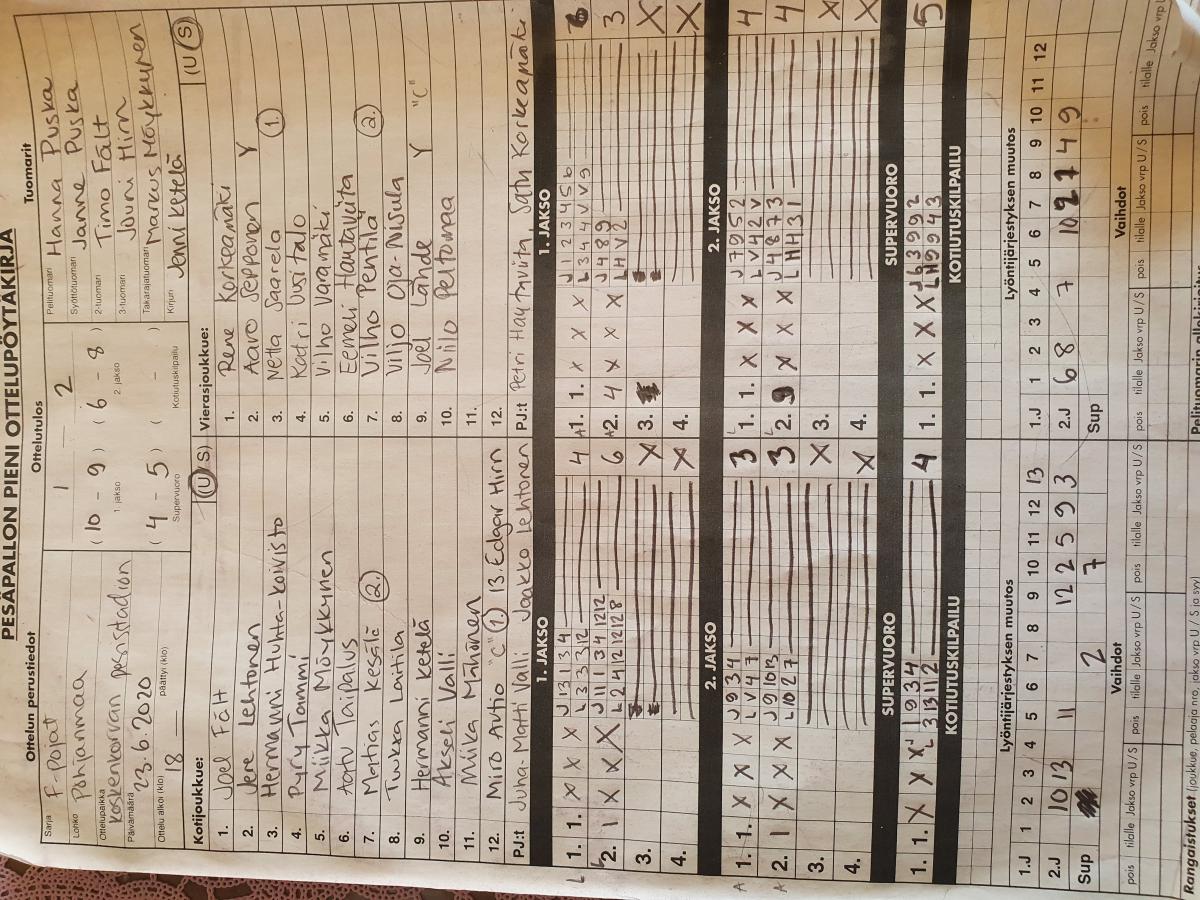 PESÄPALLON PIENI OTTELUPÖYTÄKIRJA
Ottelun perustiedot
Sarja F-Pojat
Lohko Pohjanmaa
Ottelupaikka Koskenkorvan pesisstadion
Päivämäärä 23.6.2020
Ottelu alkoi (klo) 18 päättyi (klo)
Ottelutulos
1 — 2
(10 - 9) (6 - 8)
1. jakso 2. jakso
(4 - 5) ( - )
Supervuoro Kotiutuskilpailu
Tuomarit
Pelituomari Hanna Puska
Syöttötuomari Janne Puska
2-tuomari Timo Fält
3-tuomari Jouni Hirn
Takarajatuomari Markus Möykkynen
Kirjuri Jenni Ketelä
Kotijoukkue: (U S)
1. Joel Fält
2. Jere Lehtonen
3. Hermanni Huhta-Koivisto
4. Pyry Tammi
5. Miikka Möykkynen
6. Aatu Taipalus
7. Matias Kesälä 2.
8. Tukka Laitila
9. Hermanni Ketelä
10. Akseli Valli
11. Miika Mähönen
12. Miro Autio "C" 1. 13. Edgar Hirn
PJ:t Juha-Matti Valli Jaakko Lehtonen
Vierasjoukkue: (U S)
1. Rene Korkeamäki
2. Aaro Sepponen Y
3. Netta Saarela 1.
4. Kadri Uusitalo
5. Vilho Vaaramäki
6. Eemeli Hautaviita
7. Vilho Penttilä 2.
8. Viljo Oja-Nisula
9. Joel Lähde Y "C"
10. Niilo Peltomaa
11.
12.
PJ:t Petri Hautaviita, Satu Korkeamäki
1. JAKSO
L 1. 1. X X X J 1 3 1 3 4 4
L 3 3 3 12
2. 1 X X X J 11 1 3 4 12 12 6
L 2 4 12 12 12 8
3. X
4. X
1. JAKSO
1. 1. X X X J 1 2 3 4 5 6
L 3 4 4 V V 9
2. 4 X X X J 4 8 9 3
L H V 2
3. X
4. X
2. JAKSO
A 1. 1. X X X J 9 3 4 3
L V 4 7
A 2. 1 X X X J 9 10 13 3
L 10 2 7
3. X
4. X
2. JAKSO
1. 1. X X X J 7 9 5 2 4
L V 4 2 V
2. 9 X X X J 4 8 7 3 4
L H H 3 1
3. X
4. X
SUPERVUORO
1. 1. X X X J 1 9 3 4 4
L 3 13 11 2
SUPERVUORO
1. 1. X X X 6 3 9 9 2 5
L H 9 9 4 3
KOTIUTUSKILPAILU
KOTIUTUSKILPAILU
Lyöntijärjestyksen muutos
1.J 1 2 3 4 5 6 7 8 9 10 11 12 13
2.J 10 13 11 12 2 5 9 3
Sup 2 7
Lyöntijärjestyksen muutos
1.J 1 2 3 4 5 6 7 8 9 10 11 12
2.J 6 8 7 10 2 7 4 9
Sup
Vaihdot
pois tilalle Jakso vrp U/S pois tilalle Jakso vrp U/S pois tilalle Jakso vrp U/S
Vaihdot
pois tilalle Jakso vrp U/S pois tilalle Jakso vrp U/S pois tilalle Jakso vrp
Rangaistukset (joukkue, pelaaja nro, jakso/vrp U/S ja syy)
Pelituomarin allekirjoitus